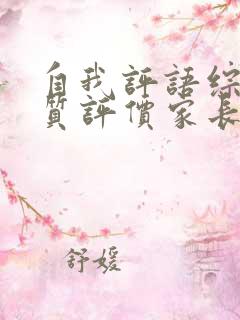 自我評語綜
質評價家長
舒媛